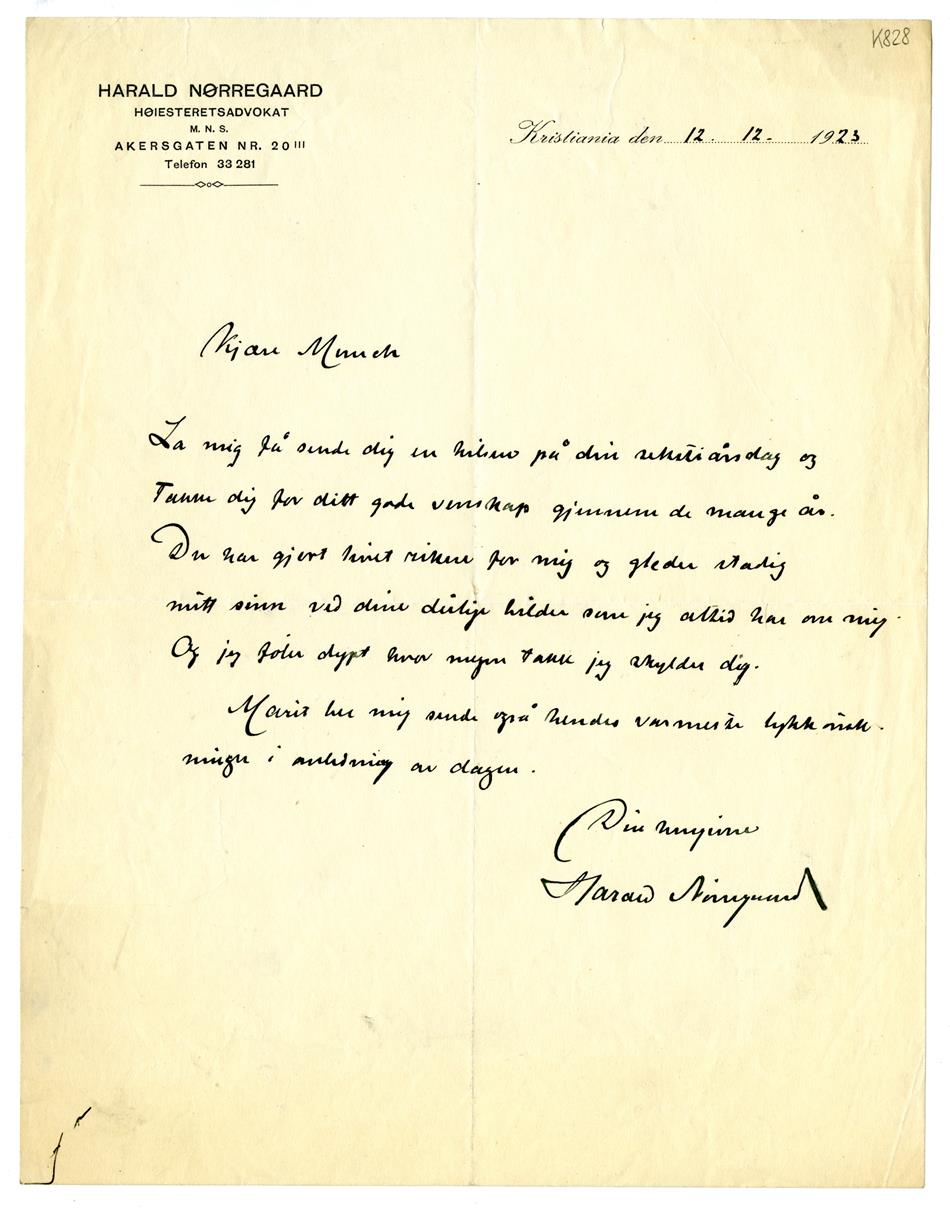 K828
HARALD NØRREGAARD
HØIESTERETSADVOKAT
M. N. S.
AKERSGATEN NR. 20 III
Telefon 33 281
Kristiania den 12. 12. 1923
Kjære Munch
La mig få sende dig en hilsen på din sekstiårsdag og
takke dig for ditt gode venskap gjennem de mange år.
Du har gjort livet rikere for mig og gleder stadig
mitt sinn ved dine deilige bilder som jeg altid har om mig.
Og jeg føler dypt hvor megen takk jeg skylder dig.
Marit ber mig sende også hendes varmeste lykkønsk-
ninger i anledning av dagen.
Din hengivne
Harald Nørregaard